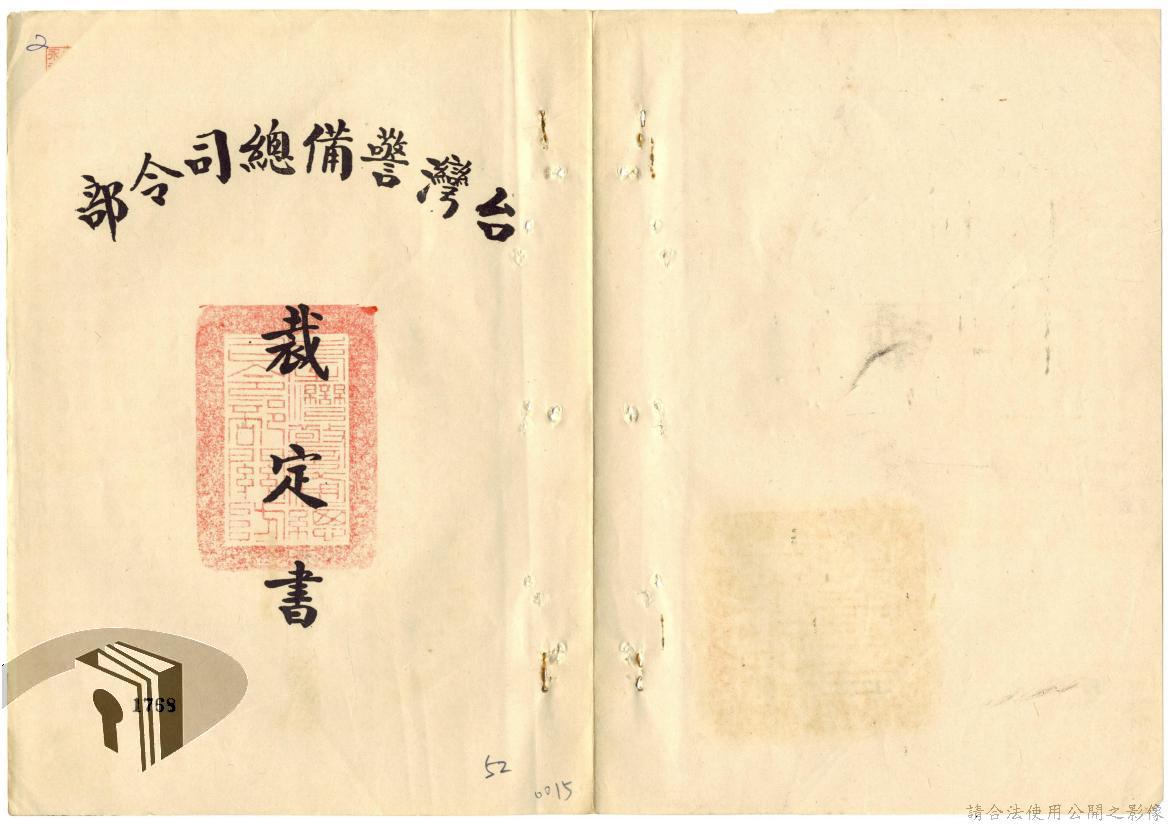 2
台灣警備總司令部
裁定書
1768
52
0015
請合法使用公開之影像